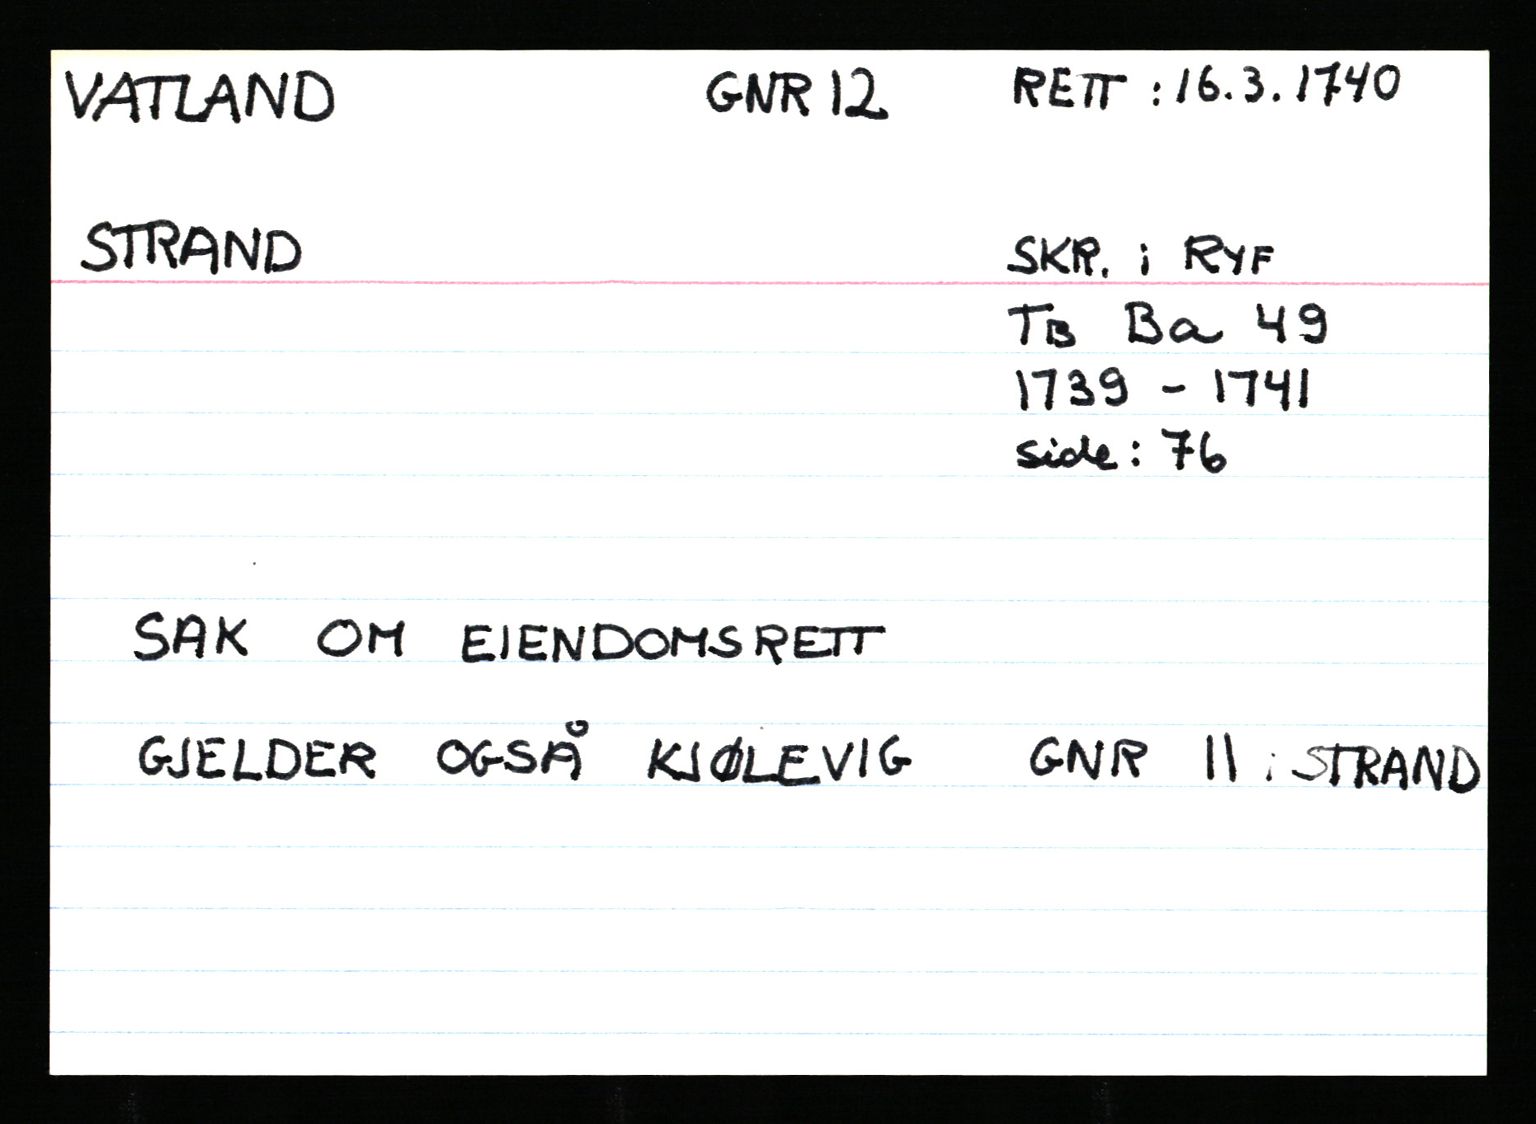 VATLAND GNR 12 RETT : 16.3.1740
STRAND SKR. i RYF
TB Ba 49
1739 - 1741
side: 76
SAK OM EIENDOMSRETT
GJELDER OGSÅ KJØLEVIG GNR 11 i STRAND